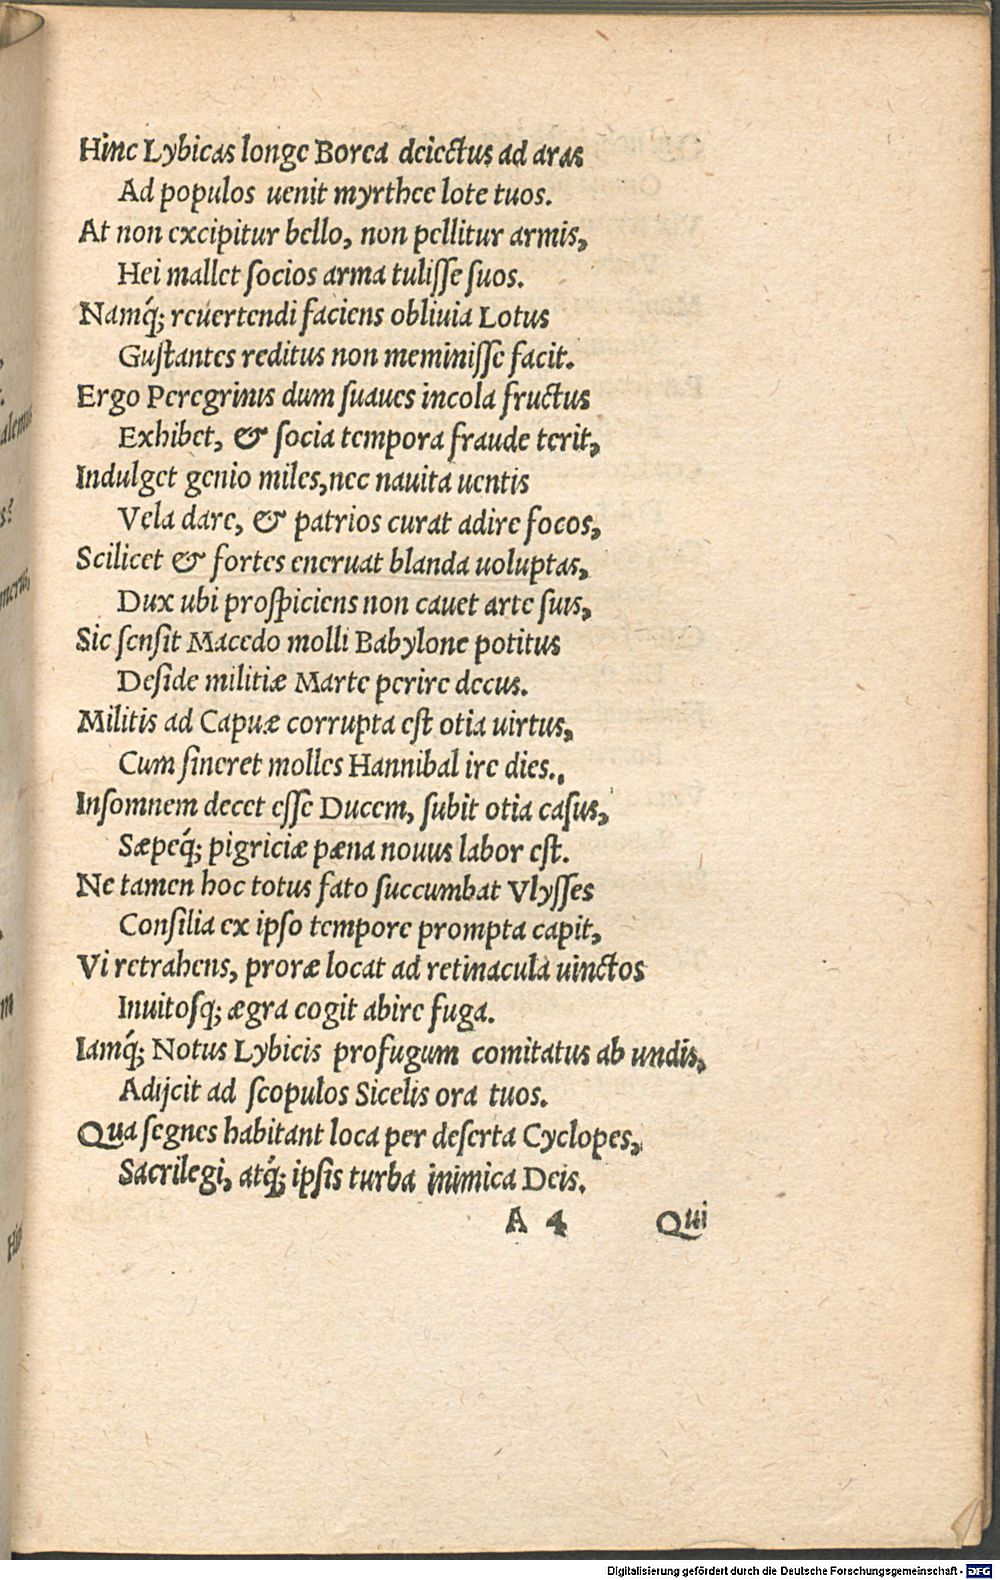 Hinc Lybicas longe Borea deiectus ad aras
Ad populos uenit myrthee lote tuos.
At non excipitur bello, non pellitur armis,
Hei mallet socios arma tulisse suos.
Namq́; reuertendi faciens obliuia Lotus
Gustantes reditus non meminisse facit.
Ergo Peregrinis dum suaues incola fructus
Exhibet, & socia tempora fraude terit,
Indulget genio miles, nec nauita uentis
Vela dare, & patrios curat adire focos,
Scilicet & fortes eneruat blanda uoluptas,
Dux ubi prospiciens non cauet arte suis,
Sic sensit Macedo molli Babylone potitus
Deside militiæ Marte perire decus.
Militis ad Capuæ corrupta est otia uirtus,
Cum sineret molles Hannibal ire dies.,
Insomnem decet esse Ducem, subit otia casus,
Sæpeq́; pigriciæ pæna nouus labor est.
Ne tamen hoc totus fato succumbat Vlysses
Consilia ex ipso tempore prompta capit,
Vi retrahens, proræ locat ad retinacula uinctos
Inuitosq; ægra cogit abire fuga.
Iamq́; Notus Lybicis profugum comitatus ab undis,
Adijcit ad scopulos Sicelis ora tuos.
Qua segnes habitant loca per deserta Cyclopes,
Sacrilegi, atq́; ipsis turba inimica Deis.
A 4 Qui
Digitalisierung gefördert durch die Deutsche Forschungsgemeinschaft - DFG